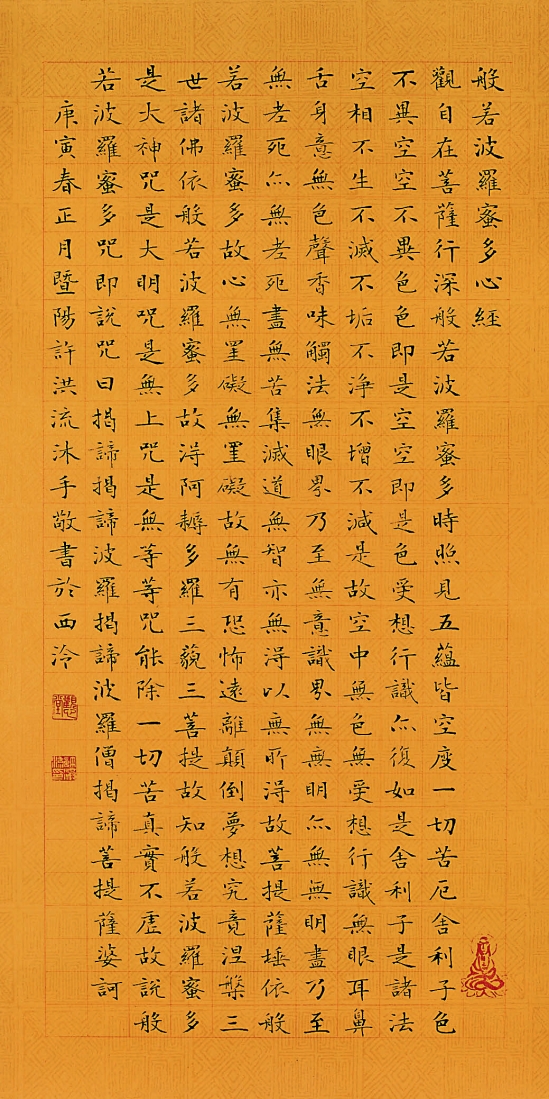 般若波羅蜜多心經
觀自在菩薩行深般若波羅蜜多時照見五蘊皆空度一切苦厄舍利子色
不異空空不異色色即是空空即是色受想行識亦復如是舍利子是諸法
空相不生不滅不垢不淨不增不減是故空中無色無受想行識無眼耳鼻
舌身意無色聲香味觸法無眼界乃至無意識界無無明亦無無明盡乃至
無老死亦無老死盡無苦集滅道無智亦無得以無所得故菩提薩埵依般
若波羅蜜多故心無罣礙無罣礙故無有恐怖遠離顛倒夢想究竟涅槃三
世諸佛依般若波羅蜜多故得阿耨多羅三藐三菩提故知般若波羅蜜多
是大神咒是大明咒是無上咒是無等等咒能除一切苦真實不虛故說般
若波羅蜜多咒即說咒曰揭諦揭諦波羅揭諦波羅僧揭諦菩提薩婆訶
庚寅春正月暨陽許洪流沐手敬書於西泠